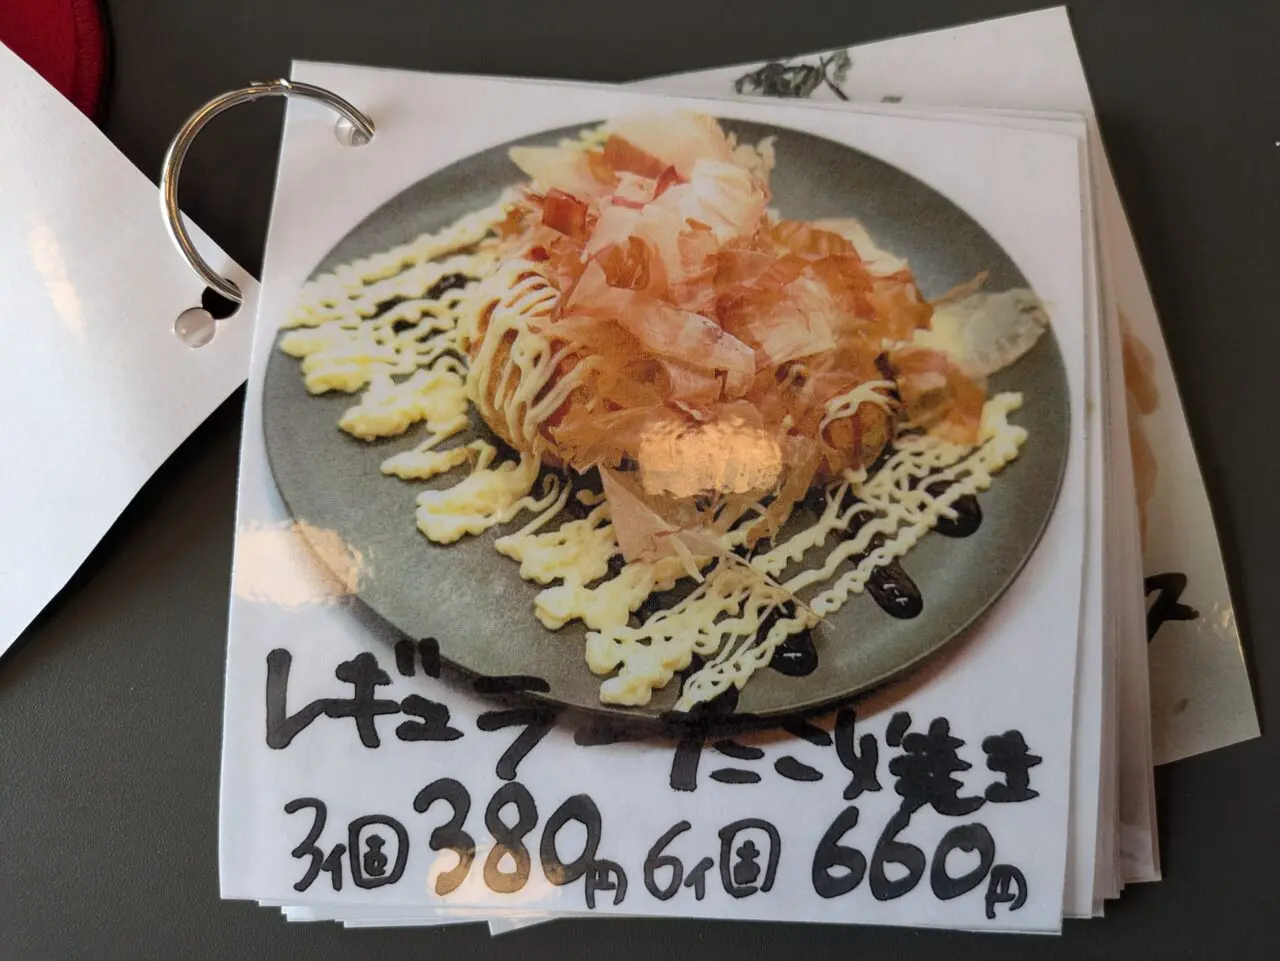 レギュラーたこ焼き
3個380円 6個660円